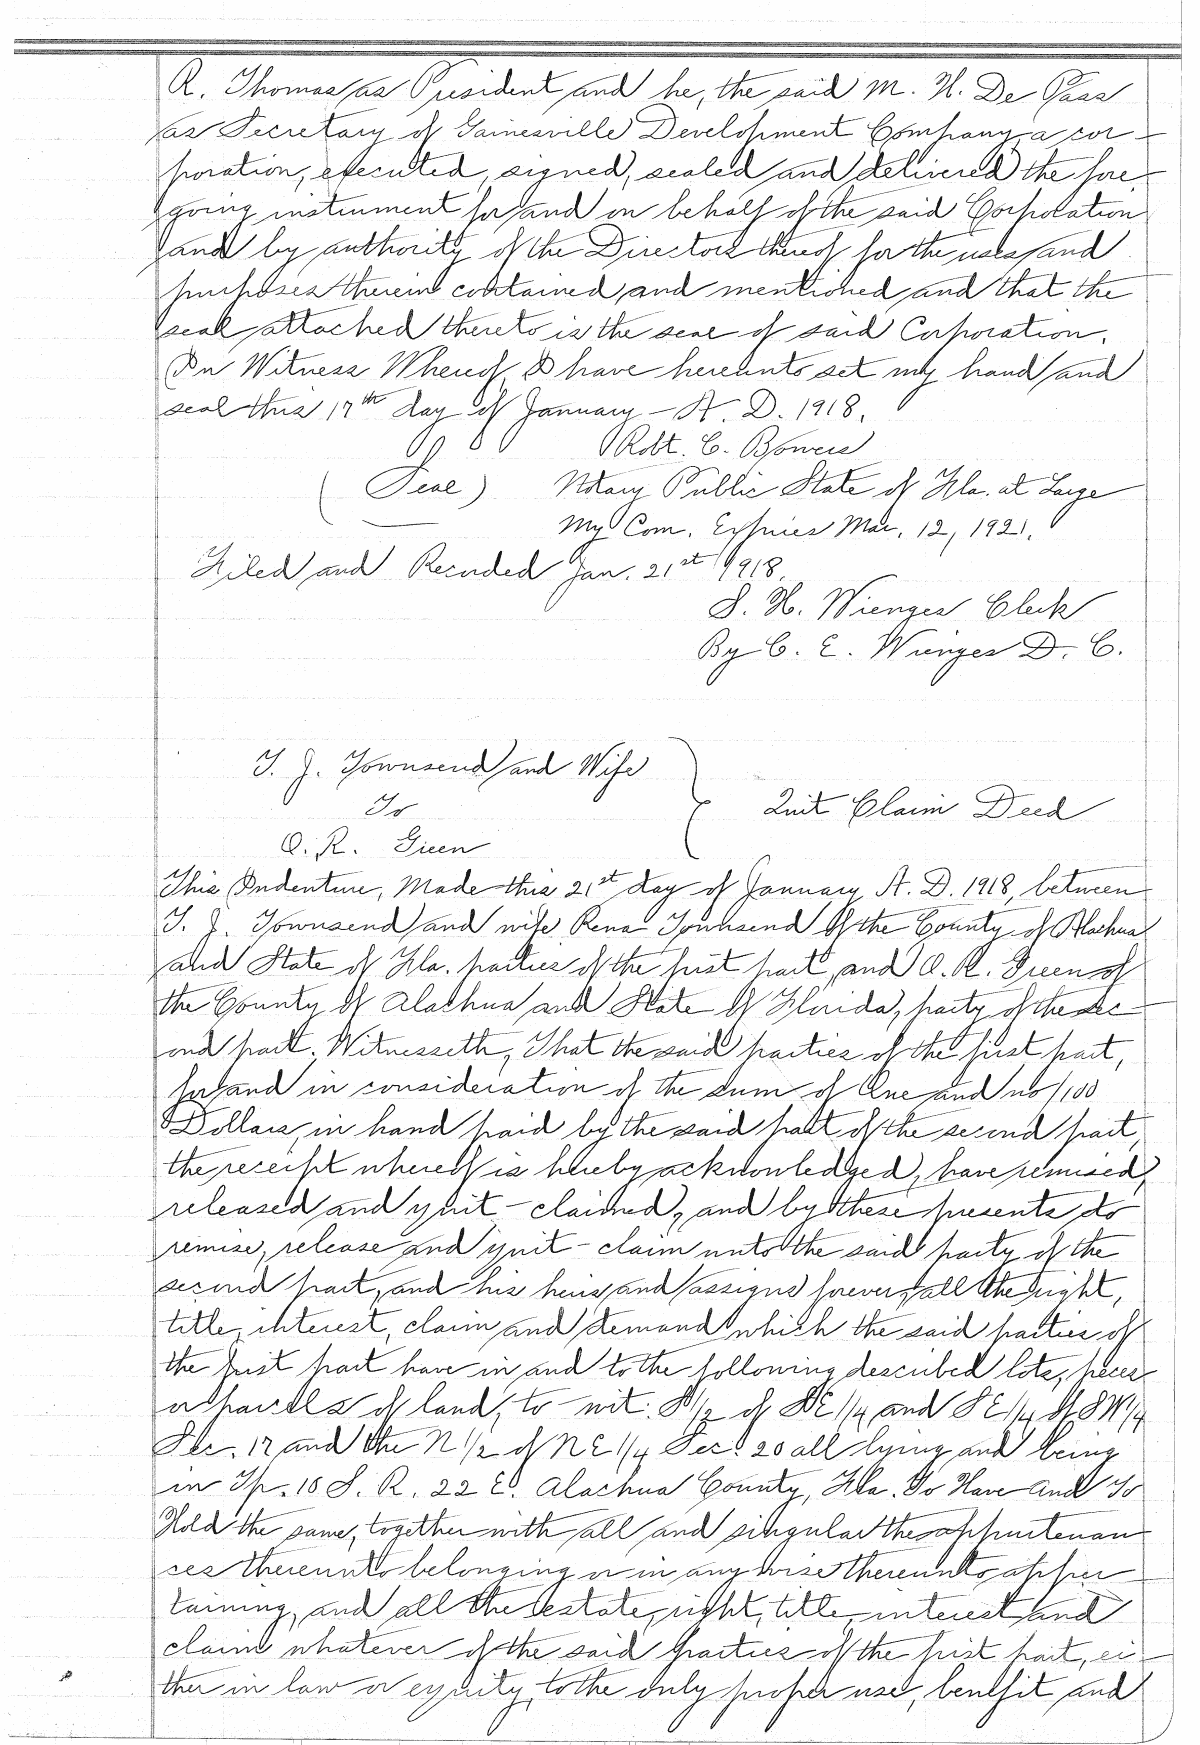 R. Thomas as President and he, the said M. H. De Pass
as Secretary of Gainesville Development Company, a cor-
poration, executed, signed, sealed and delivered the fore-
going instrument for and on behalf of the said Corporation
and by authority of the Directors thereof for the uses and
purposes therein contained and mentioned and that the
seal attached thereto is the seal of said Corporation.
In Witness Whereof, I have hereunto set my hand and
seal this 17th day of January - A. D. 1918.
Robt. C. Bowers
(Seal) Notary Public State of Fla. at Large
My Com. Expires Mar. 12, 1921.
Filed and Recorded Jan. 21st 1918.
S. H. Wienges Clerk
By C. E. Wienges D. C.
T. J. Townsend and Wife
To
Quit Claim Deed
O. R. Green
This Indenture, Made this 21st day of January, A. D. 1918, between
T. J. Townsend and wife Rena Townsend of the County of Alachua
and State of Fla. parties of the first part, and O. R. Green of
the County of Alachua and State of Florida, party of the sec-
ond part. Witnesseth, That the said parties of the first part,
for and in consideration of the sum of One and no/100
Dollars, in hand paid by the said part of the second part,
the receipt whereof is hereby acknowledged, have remised,
released and quit-claimed, and by these presents do
remise, release and quit-claim unto the said party of the
second part, and his heirs and assigns forever, all the right,
title, interest, claim and demand which the said parties of
the first part have in and to the following described lots, pieces
or parcels of land, to-wit: S 1/2 of SE 1/4 and SE 1/4 of SW 1/4
Sec. 17 and the N 1/2 of NE 1/4 Sec. 20 all lying and being
in Tp. 10 S. R. 22 E. Alachua County, Fla. To Have and To
Hold the same, together with all and singular the appurtenan
ces thereunto belonging or in any wise thereunto apper
taining, and all the estate, right, title, interest and
claim whatever of the said parties of the first part, ei-
ther in law or equity, to the only proper use, benefit and